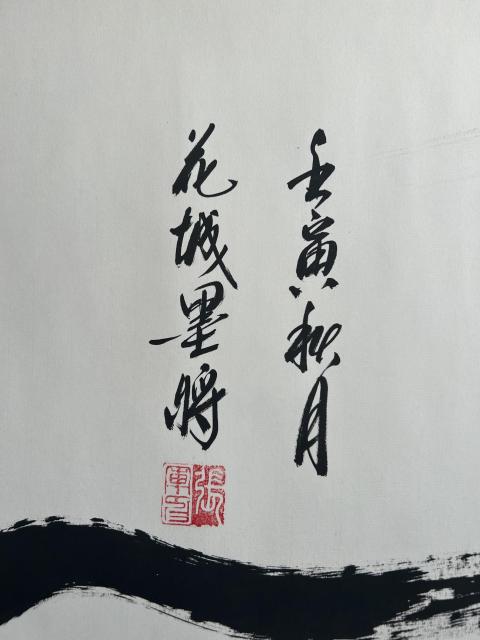 壬寅秋月
花城墨将
張軍印